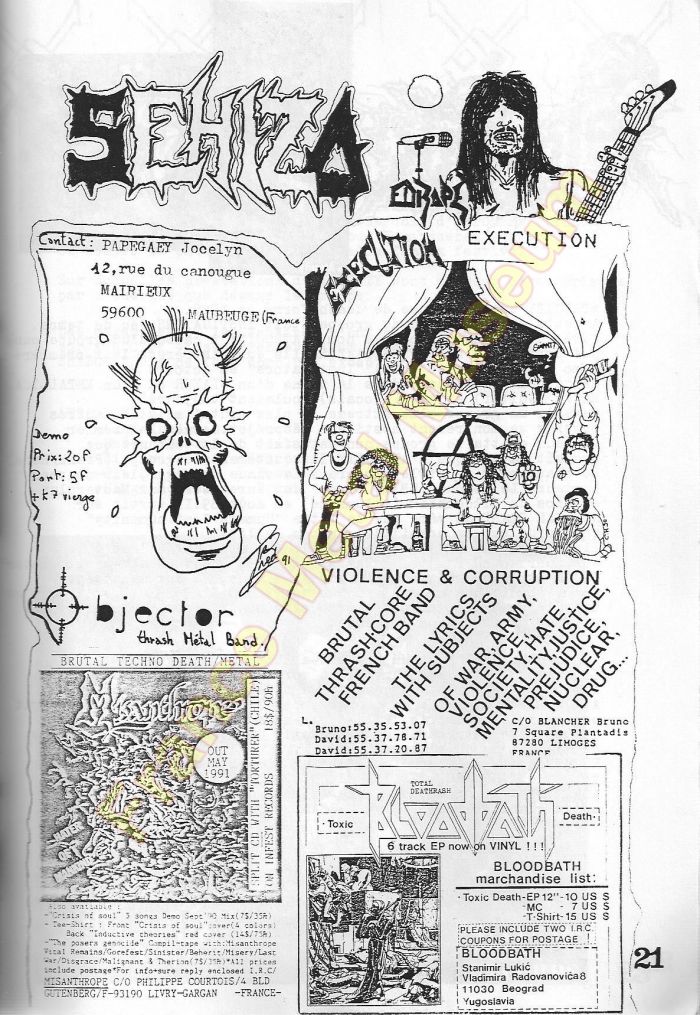 SEHIZO
EDIKAPE
Contact: PAPEGAEY Jocelyn
12, rue du canougue
MAIRIEUX
59600 MAUBEUGE (France
Demo
Prix: 20F
Port: 5F
+ K7 vierge
91
Objector
thrash Metal Band.
EXECUTION
EXECUTION
VIOLENCE & CORRUPTION
BRUTAL
THRASH-CORE
FRENCH BAND
THE LYRICS
WITH SUBJECTS
OF WAR, ARMY,
VIOLENCE,
SOCIETY, HATE
MENTALITY, JUSTICE,
PREJUDICE,
NUCLEAR,
DRUG...
L.
Bruno:55.35.53.07
David:55.37.78.71
David:55.37.20.87
C/O BLANCHER Bruno
7 Square Plantadis
87280 LIMOGES
FRANCE
BRUTAL TECHNO DEATH/METAL
Misanthrope
OUT
MAY
1991
SPLIT CD WITH "TORTURER"(CHILE)
ON INFEST RECORDS 18$/90ft
Also available :
-"Crisis of soul" 5 songs Demo Sept'90 Mix(7$/35ft)
- Tee-Shirt : Front "Crisis of soul"cover(4 colors)
Back "Inductive theories" red cover (14$/75ft)
-"The posers genocide" Compil-tape with:Misanthrope
Vital Remains/Gorefest/Sinister/Beherit/Misery/Last
War/Disgrace/Malignant & Therion(7$/35ft)*All prices
include postage*For info+sure reply enclosed I.R.C/
MISANTHROPE C/O PHILIPPE COURTOIS/4 BLD
GUTENBERG/F-93190 LIVRY-GARGAN -FRANCE-
TOTAL
DEATHRASH
BLOODBATH
·Toxic
Death·
6 track EP now on VINYL !!!
BLOODBATH
marchandise list:
·Toxic Death-EP 12"-10 US $
- MC - 7 US $
-T-Shirt-15 US $
PLEASE INCLUDE TWO I.R.C.
COUPONS FOR POSTAGE !
BLOODBATH
Stanimir Lukić
Vladimira Radovanovića 8
11030 Beograd
Yugoslavia
21
France Metal Museum